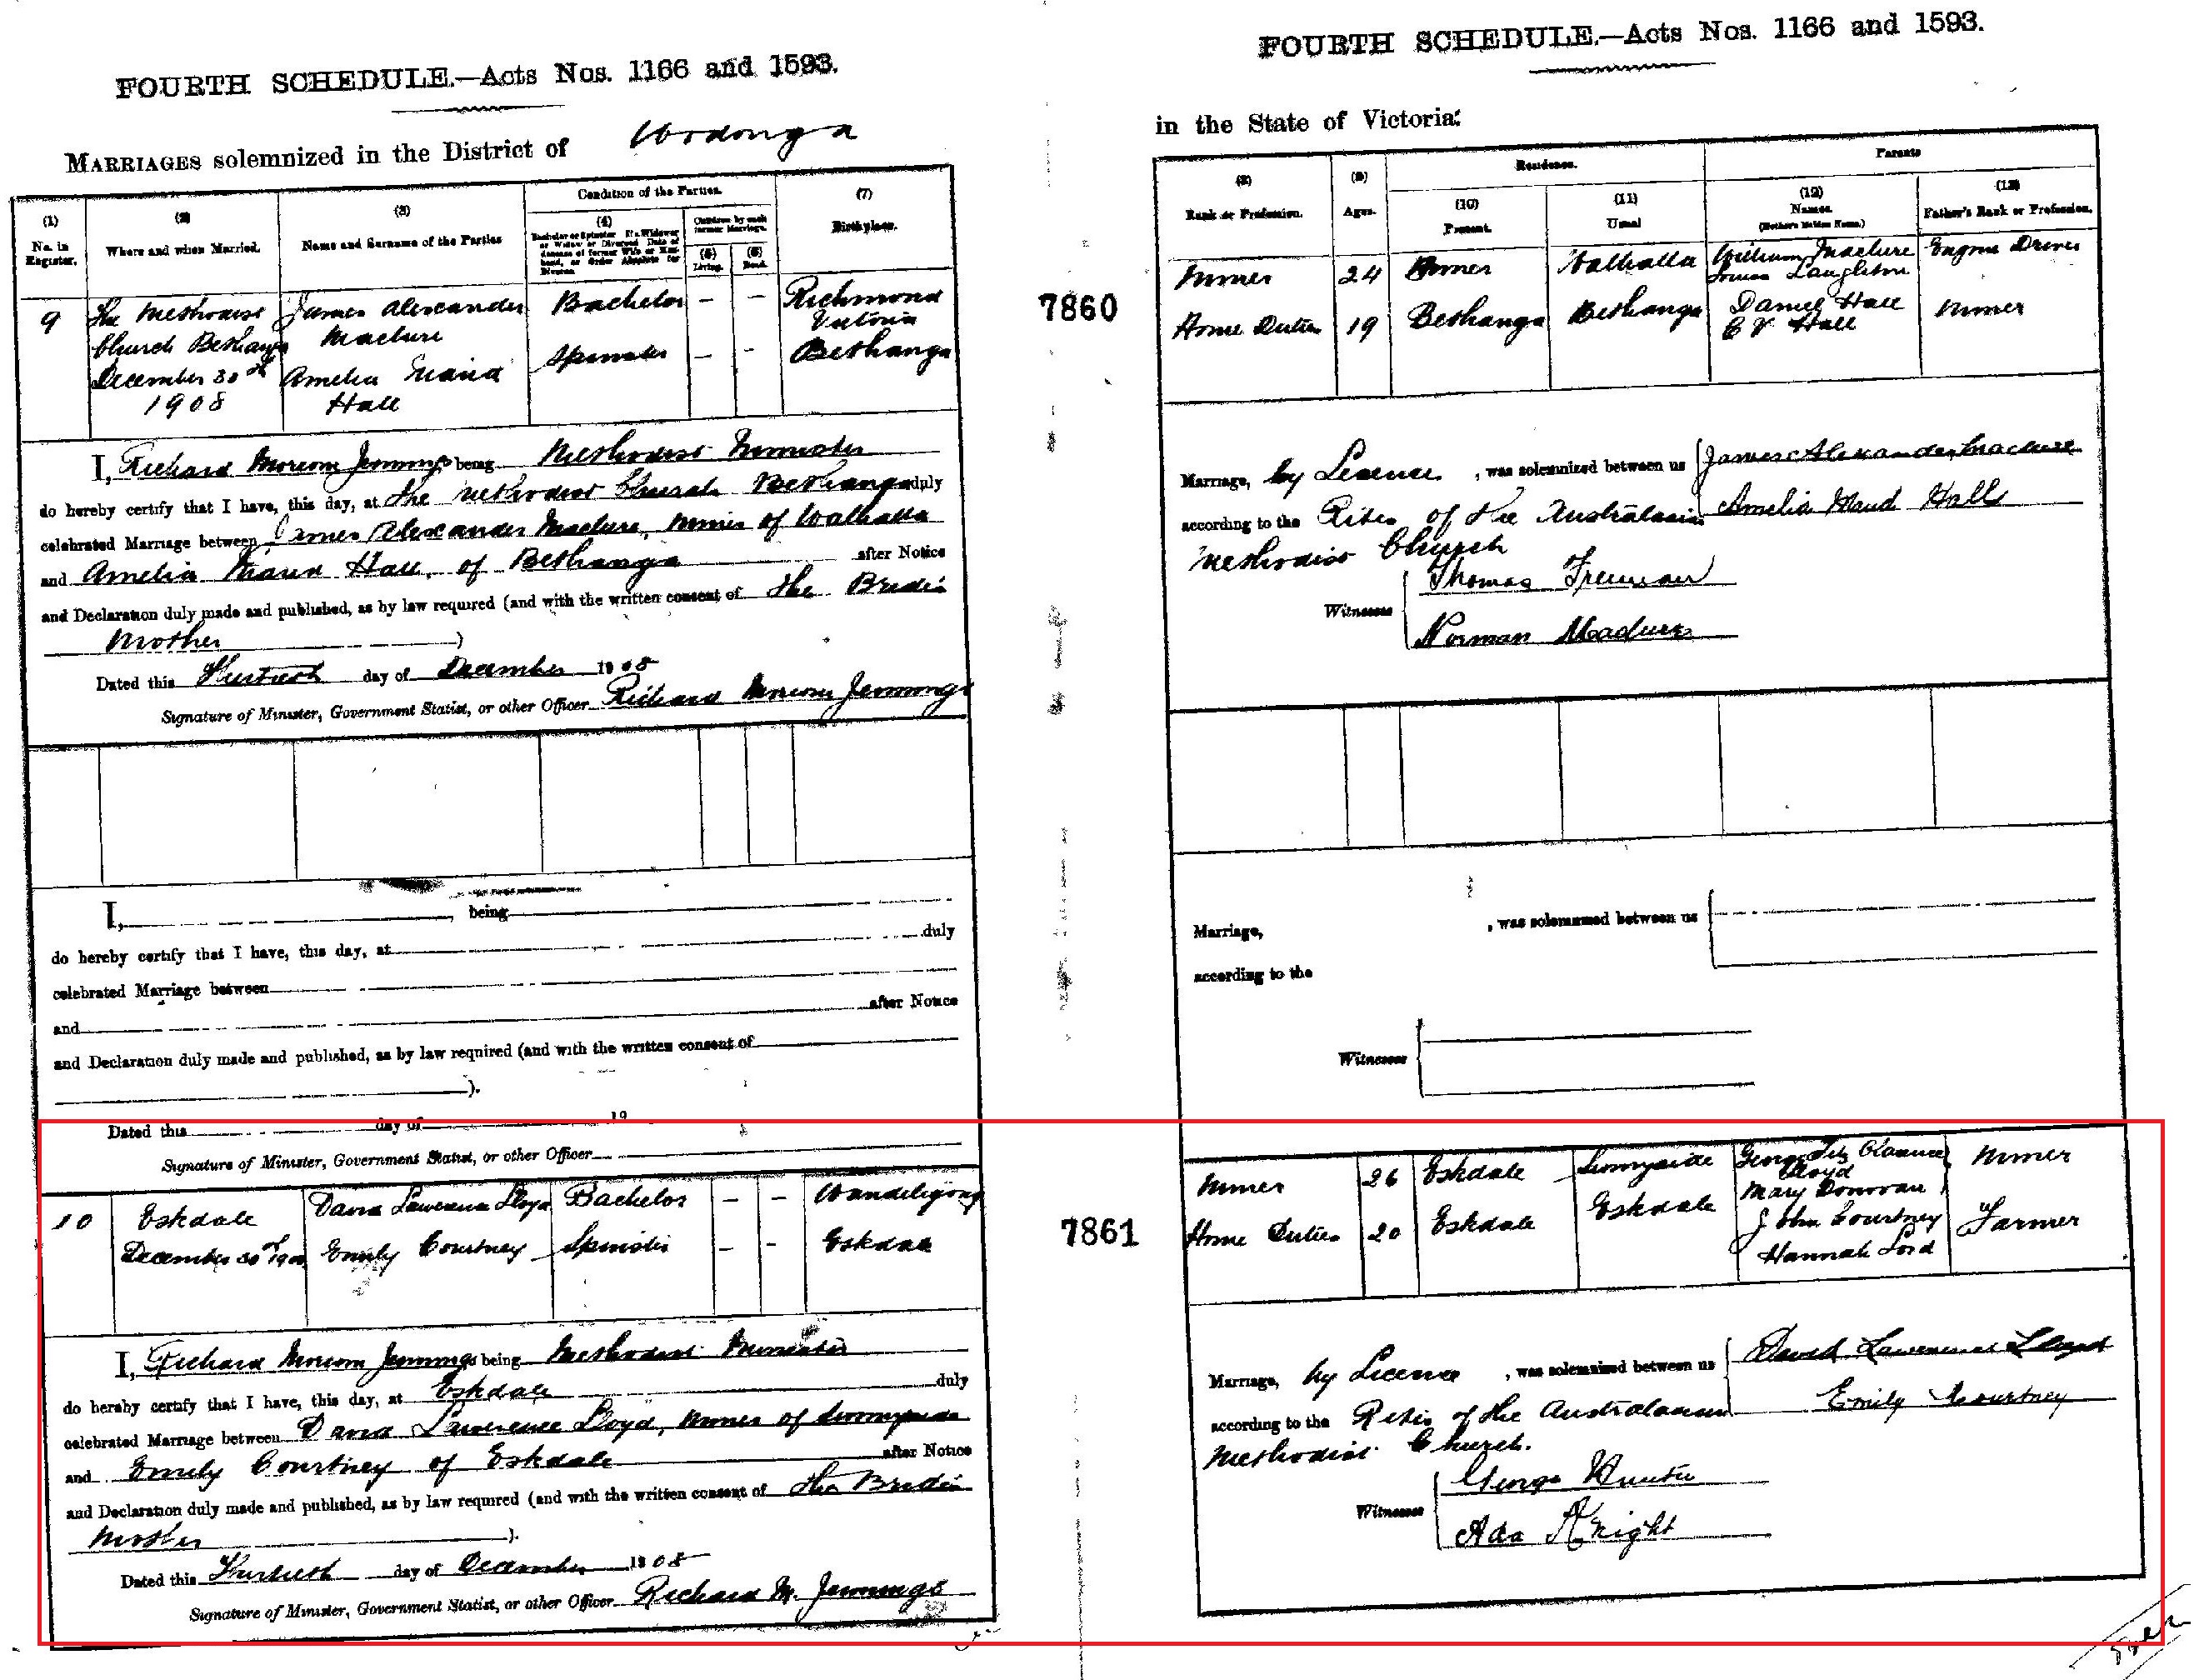 FOURTH SCHEDULE.—Acts Nos. 1166 and 1593.
MARRIAGES solemnized in the District of Wodonga
(1) No. in Register.
(2) Where and when Married.
(3) Name and Surname of the Parties
Condition of the Parties.
(4) Bachelor or Spinster. If a Widower or Widow or Divorced Date of decease of former Wife or Husband, or Order Absolute for Divorce
Children by each former Marriage.
(5) Living.
(6) Dead.
(7) Birthplace.
9
The Methodist Church Bethanga December 30th 1908
James Alexander Maclure
Bachelor - -
Richmond Victoria
Amelia Maud Hall
Spinster - -
Bethanga
I, Richard Morcom Jennings being Methodist Minister
do hereby certify that I have, this day, at the Methodist Church Bethanga duly
celebrated Marriage between James Alexander Maclure, Miner of Walhalla
and Amelia Maud Hall, of Bethanga after Notice
and Declaration duly made and published, as by law required (and with the written consent of the Brides
Mother )
Dated this Thirtieth day of December 1908
Signature of Minister, Government Statist, or other Officer Richard Morcom Jennings
I, being
do hereby certify that I have, this day, at duly
celebrated Marriage between
and after Notice
and Declaration duly made and published, as by law required (and with the written consent of
).
Dated this day of 19
Signature of Minister, Government Statist, or other Officer
10
Eskdale
December 30th
David Lawrence Lloyd
Bachelor - -
Wandiligong
Emily Courtney
Spinster - -
Eskdale
I, Richard Morcom Jennings being Methodist Minister
do hereby certify that I have, this day, at Eskdale duly
celebrated Marriage between David Lawrence Lloyd, Miner of Sunnyside
and Emily Courtney of Eskdale after Notice
and Declaration duly made and published, as by law required (and with the written consent of the Brides
Mother ).
Dated this Thirtieth day of December 1908
Signature of Minister, Government Statist, or other Officer Richard M. Jennings
7860
7861
FOURTH SCHEDULE.—Acts Nos. 1166 and 1593.
in the State of Victoria:
(8) Rank or Profession.
(9) Ages.
Residence.
(10) Present.
(11) Usual
Parents
(12) Names. (Mother's Maiden Name.)
(13) Father's Rank or Profession.
Miner 24 Walhalla William Maclure Engine Driver
Louisa Langleton
Home Duties 19 Bethanga Bethanga Daniel Hall Miner
E V Hall
Marriage, by Licence, was solemnized between us James Alexander Maclure
according to the Rites of the Australasian Amelia Maud Halls
Methodist Church
Witnesses Thomas Freeman
Norman Maclure
Marriage, , was solemnized between us
according to the
Witnesses
Miner 26 Eskdale Sunnyside George Clarence Lloyd Miner
Mary Donovan
Home Duties 20 Eskdale Eskdale John Courtney Farmer
Hannah Lord
Marriage, by Licence, was solemnized between us David Lawrence Lloyd
according to the Rites of the Australasian Emily Courtney
Methodist Church.
Witnesses George Hunter
Ada Knight